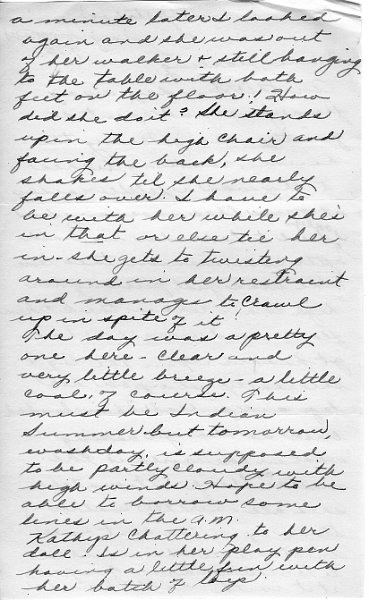 a minute later I looked
again and she was out
of her walker & still hanging
to the table with both
feet on the floor! How
did she do it? She stands
up in the high chair and
facing the back, she
shakes til she nearly
falls over. I have to
be with her while she's
in that or else tie her
in - she gets to twisting
around in her restraint
and manages to crawl
up in spite of it!
The day was a pretty
one here - clear and
very little breeze - a little
cool, of course. This
must be Indian
Summer but tomorrow,
washday, is supposed
to be partly cloudy with
high winds. Hope to be
able to borrow some
lines in the a.m.
Kathys chattering to her
doll. Is in her play pen
having a little fun with
her batch of toys.